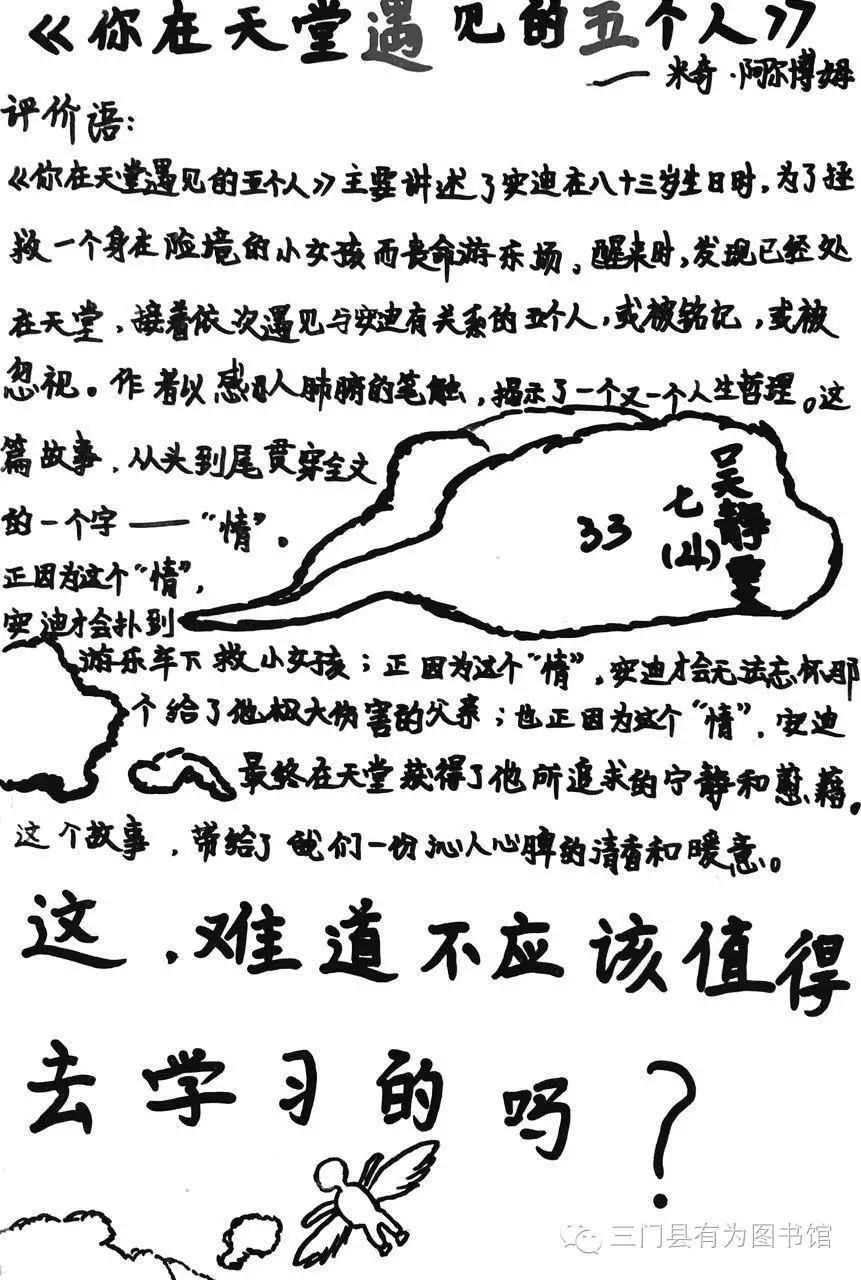 《你在天堂遇见的五个人》
——米奇·阿尔博姆
评价语：
《你在天堂遇见的五个人》主要讲述了安迪在八十三岁生日时，为了拯
救一个身在险境的小女孩而丧命游乐场。醒来时，发现已经处
在天堂，接着依次遇见与安迪有关系的五个人，或被铭记，或被
忽视。作者以感人肺腑的笔触，揭示了一个又一个人生哲理。这
篇故事，从头到尾贯穿全文
的一个字——“情”。
正因为这个“情”，
安迪才会扑到
游乐车下救小女孩；正因为这个“情”，安迪才会无法忘怀那
个给了他极大伤害的父亲；也正因为这个“情”，安迪
最终在天堂获得了他所追求的宁静和慰藉。
这个故事，带给了我们一份沁人心脾的清香和暖意。
这，难道不应该值得
去学习的吗？
33
七(4)
吴静
三门县有为图书馆